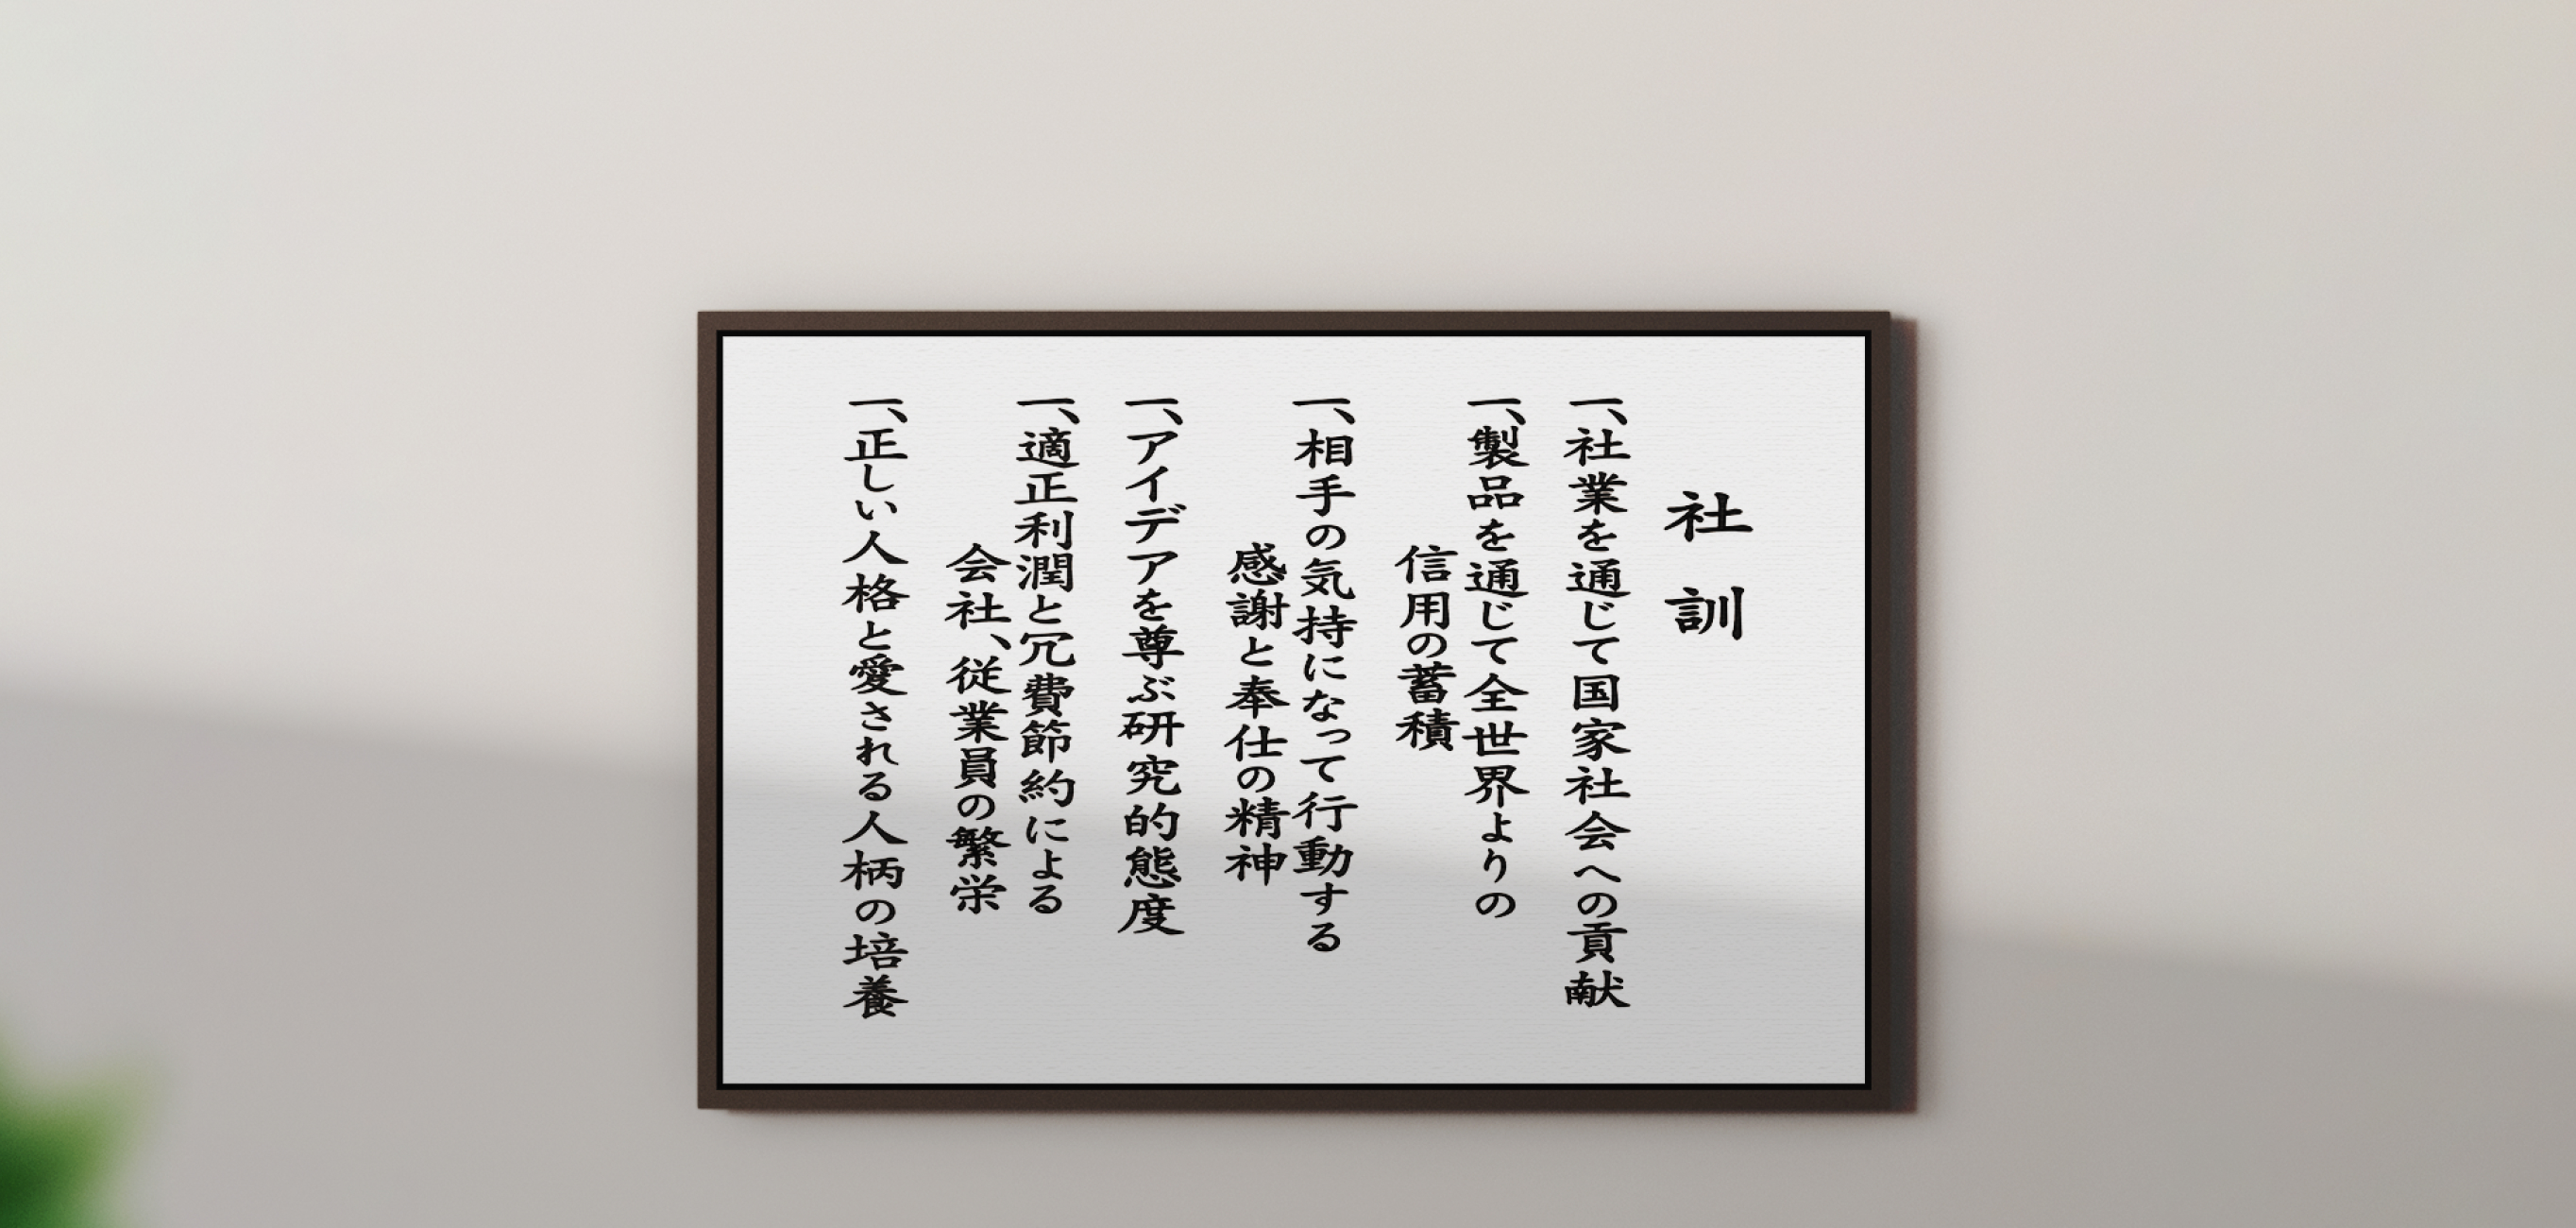 社訓
一、社業を通じて国家社会への貢献
一、製品を通じて全世界よりの
信用の蓄積
一、相手の気持になって行動する
感謝と奉仕の精神
一、アイデアを尊ぶ研究的態度
一、適正利潤と冗費節約による
会社、従業員の繁栄
一、正しい人格と愛される人柄の培養